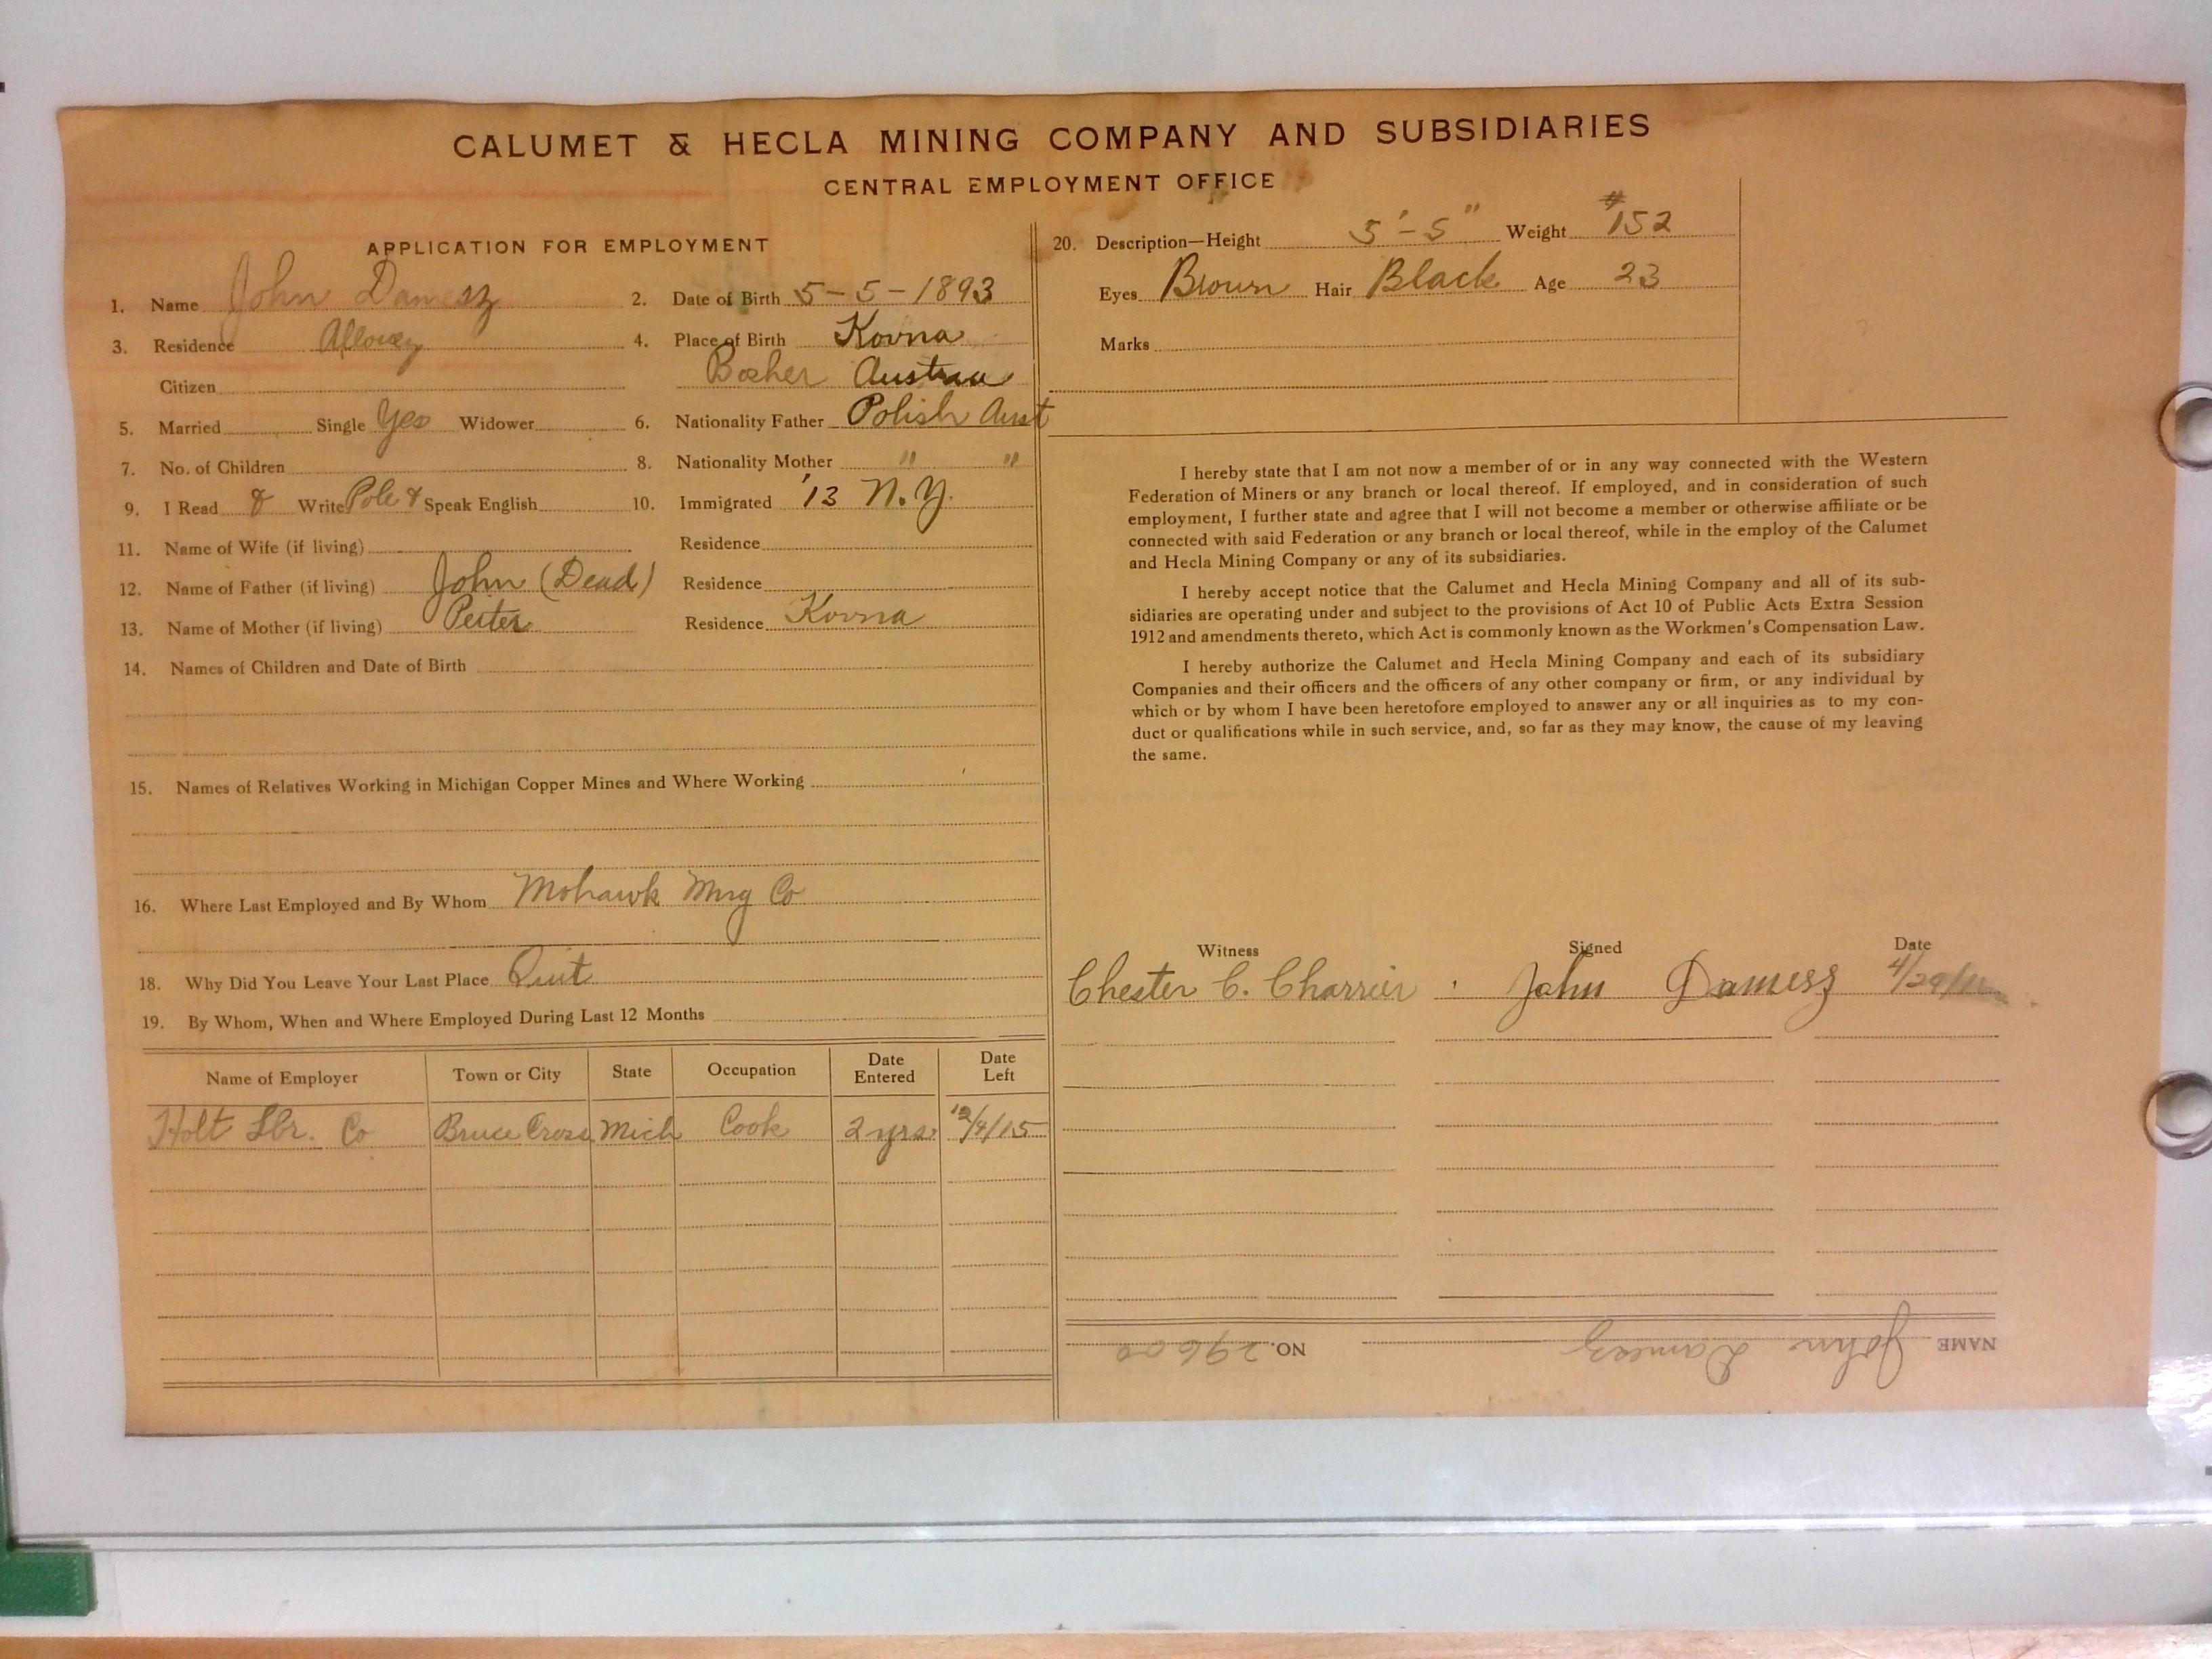 CALUMET & HECLA MINING COMPANY AND SUBSIDIARIES
CENTRAL EMPLOYMENT OFFICE
APPLICATION FOR EMPLOYMENT
1. Name John Damesz 2. Date of Birth 5-5-1893
3. Residence Allouez 4. Place of Birth Kovna
Citizen Austria
5. Married Single Yes Widower 6. Nationality Father Polish Aust
7. No. of Children 8. Nationality Mother " "
9. I Read & Write Pole & Speak English 10. Immigrated '13 N.Y.
11. Name of Wife (if living) Residence
12. Name of Father (if living) John (Dead) Residence
13. Name of Mother (if living) Residence Kovna
14. Names of Children and Date of Birth
15. Names of Relatives Working in Michigan Copper Mines and Where Working
16. Where Last Employed and By Whom Mohawk Mng Co
18. Why Did You Leave Your Last Place Quit
19. By Whom, When and Where Employed During Last 12 Months
Name of Employer Town or City State Occupation Date Entered Date Left
Holt Lbr. Co Bruce Cross Mich Cook 2 yrs 12/4/15
20. Description—Height 5'-5" Weight #152
Eyes Brown Hair Black Age 23
Marks
I hereby state that I am not now a member of or in any way connected with the Western
Federation of Miners or any branch or local thereof. If employed, and in consideration of such
employment, I further state and agree that I will not become a member or otherwise affiliate or be
connected with said Federation or any branch or local thereof, while in the employ of the Calumet
and Hecla Mining Company or any of its subsidiaries.
I hereby accept notice that the Calumet and Hecla Mining Company and all of its sub-
sidiaries are operating under and subject to the provisions of Act 10 of Public Acts Extra Session
1912 and amendments thereto, which Act is commonly known as the Workmen's Compensation Law.
I hereby authorize the Calumet and Hecla Mining Company and each of its subsidiary
Companies and their officers and the officers of any other company or firm, or any individual by
which or by whom I have been heretofore employed to answer any or all inquiries as to my con-
duct or qualifications while in such service, and, so far as they may know, the cause of my leaving
the same.
Witness Signed Date
Chester C. Charrier John Damesz
NAME John Damesz NO. 29600